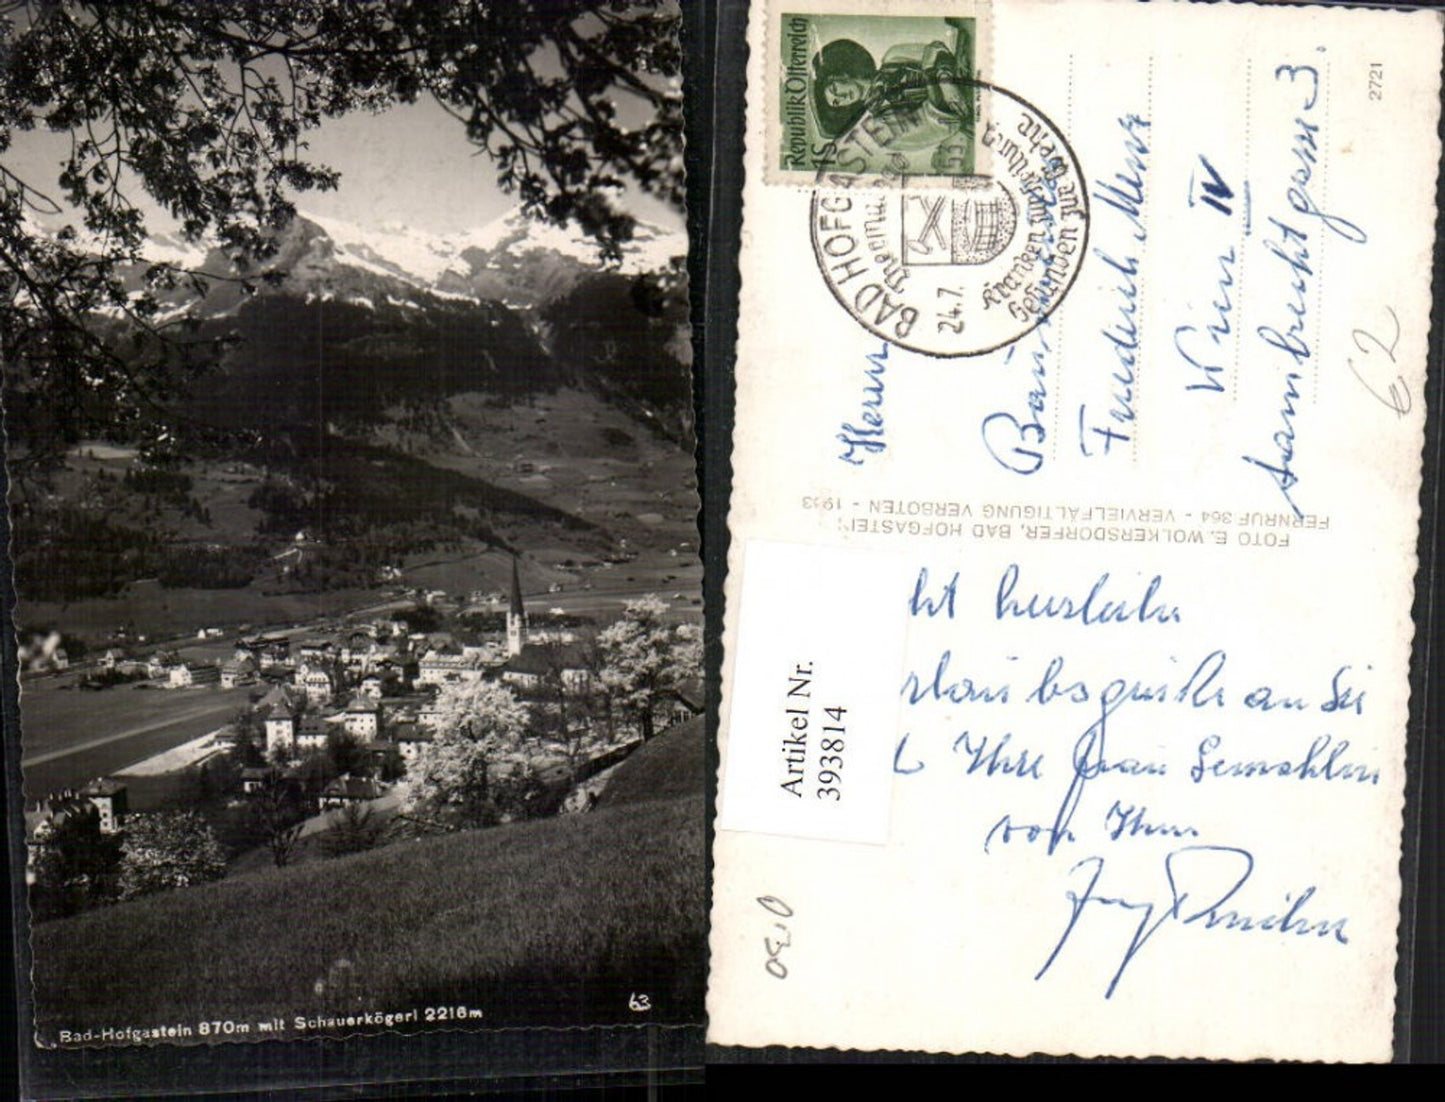 Bad-Hofgastein 870m mit Schauerkögerl 2216m
63
Republik Österreich
1S
BAD HOFGASTEIN
24.7. 53
Kranken zur Heilung
Gesunden zur Wehr
2721
Herrn
Friedrich Menz
Wien IV
Lambrechtgasse 3.
62
FOTO E. WOLKERSDORFER, BAD HOFGASTEIN
FERNRUF 364 - VERVIELFÄLTIGUNG VERBOTEN - 1953
Artikel Nr.
393814
cht herzliche
rlaubsgrüße an Sie
Ihre Frau Gemahlin
von Ihrem